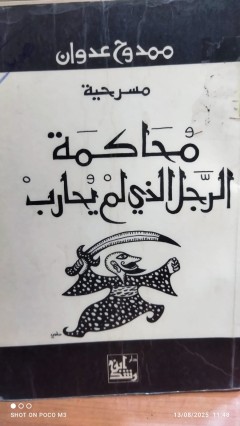 ممدوح عدوان
مسرحية
مُحَاكمَة
الرّجل الذي لمْ يُحاربْ
دار
ابن
رشد
SHOT ON POCO M3
13/08/2025 11:48